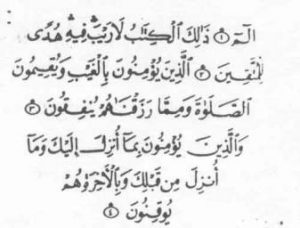 الٓمٓ ۝١ ذَٰلِكَ ٱلْكِتَٰبُ لَا رَيْبَ ۛ فِيهِ ۛ هُدًى
لِّلْمُتَّقِينَ ۝٢ ٱلَّذِينَ يُؤْمِنُونَ بِٱلْغَيْبِ وَيُقِيمُونَ
ٱلصَّلَوٰةَ وَمِمَّا رَزَقْنَٰهُمْ يُنفِقُونَ ۝٣
وَٱلَّذِينَ يُؤْمِنُونَ بِمَآ أُنزِلَ إِلَيْكَ وَمَآ
أُنزِلَ مِن قَبْلِكَ وَبِٱلْأٓخِرَةِ هُمْ
يُوقِنُونَ ۝٤